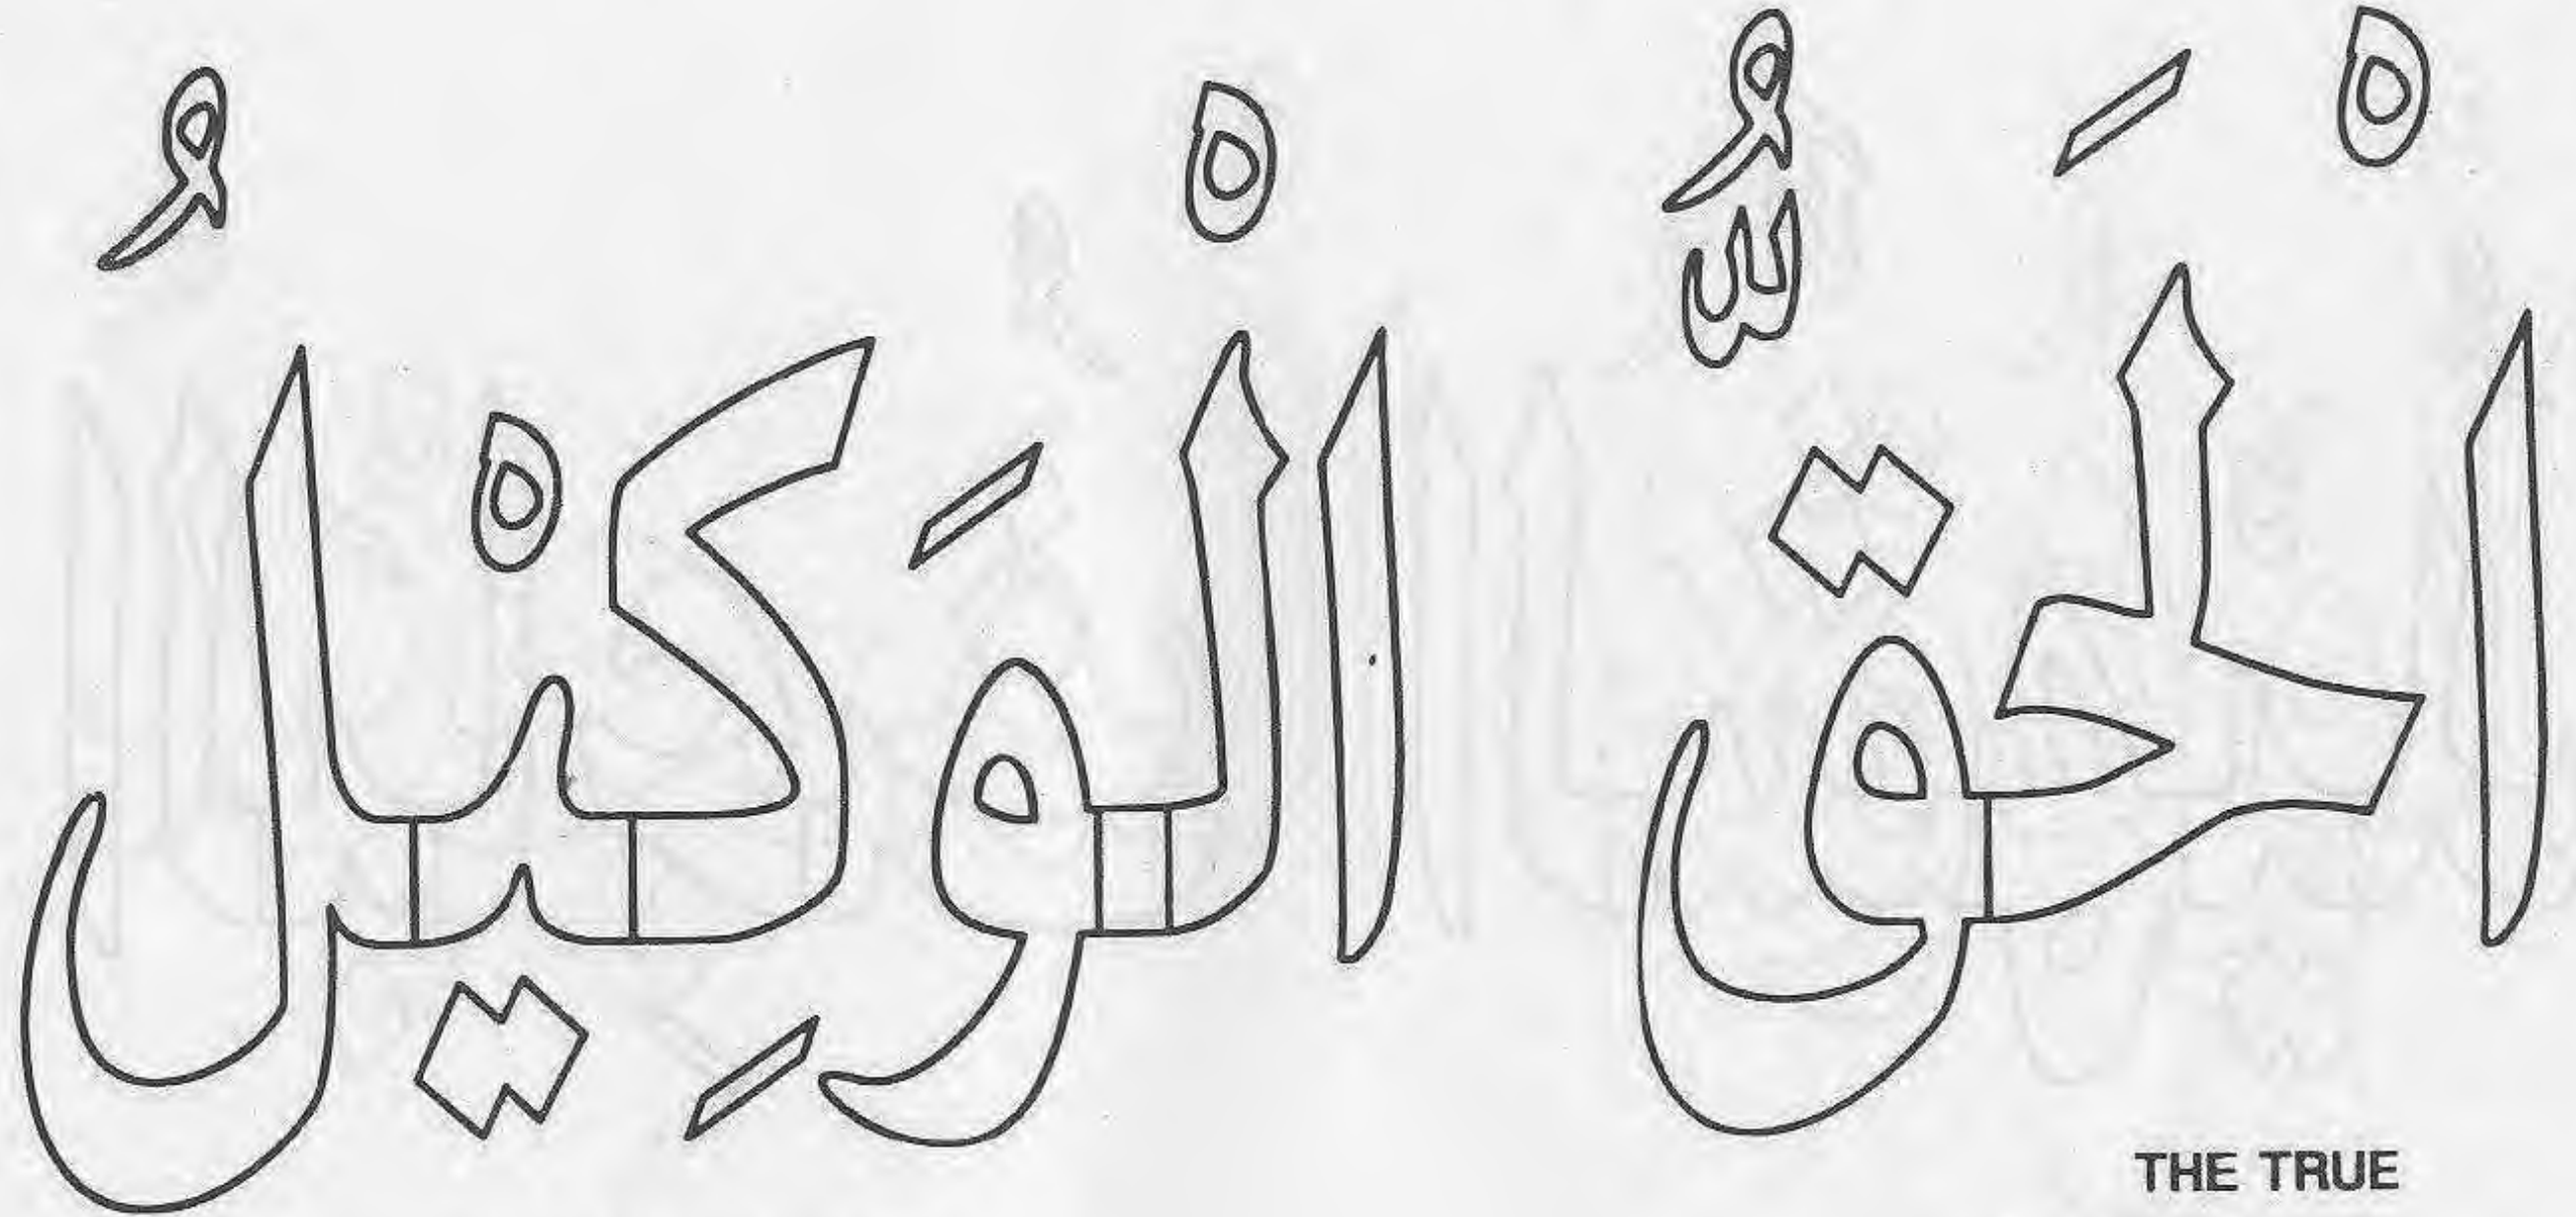 الْحَقُّ الْوَكِيْلُ
THE TRUE